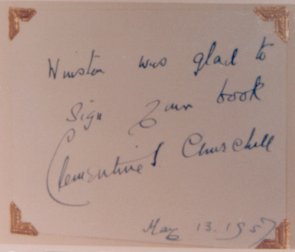 Winston was glad to
sign your book
Clementine S Churchill
May 13. 1957